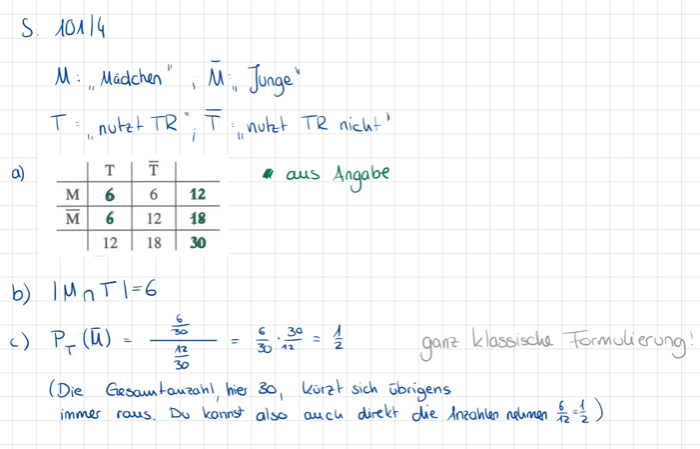 S. 101/4
M: „Mädchen", M̅: „Junge"
T: „nutzt TR"; T̅: „nutzt TR nicht"
a) T T̅ ▪ aus Angabe
M 6 6 12
M̅ 6 12 18
12 18 30
b) |M∩T|=6
c) P_T(M̅) = (6/30)/(12/30) = 6/30 · 30/12 = 1/2 ganz klassische Formulierung!
(Die Gesamtanzahl, hier 30, kürzt sich übrigens
immer raus. Du kannst also auch direkt die Anzahlen nehmen 6/12=1/2)